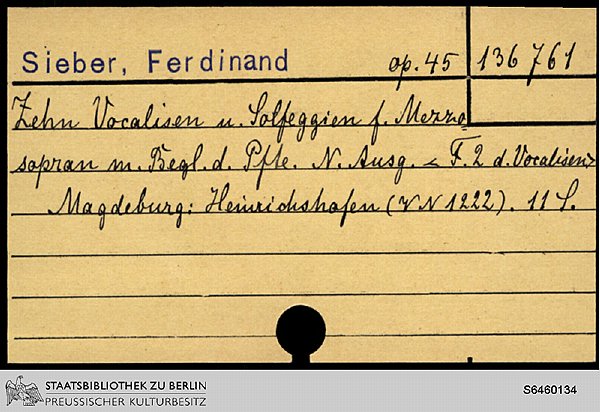 Sieber, Ferdinand op. 45 136 761
Zehn Vocalisen u. Solfeggien f. Mezzo-
sopran m. Begl. d. Pfte. N. Ausg. < F. 2 d. Vocalisen>
Magdeburg: Heinrichshofen (VN 1222). 11 S.
STAATSBIBLIOTHEK ZU BERLIN
PREUSSISCHER KULTURBESITZ
S6460134